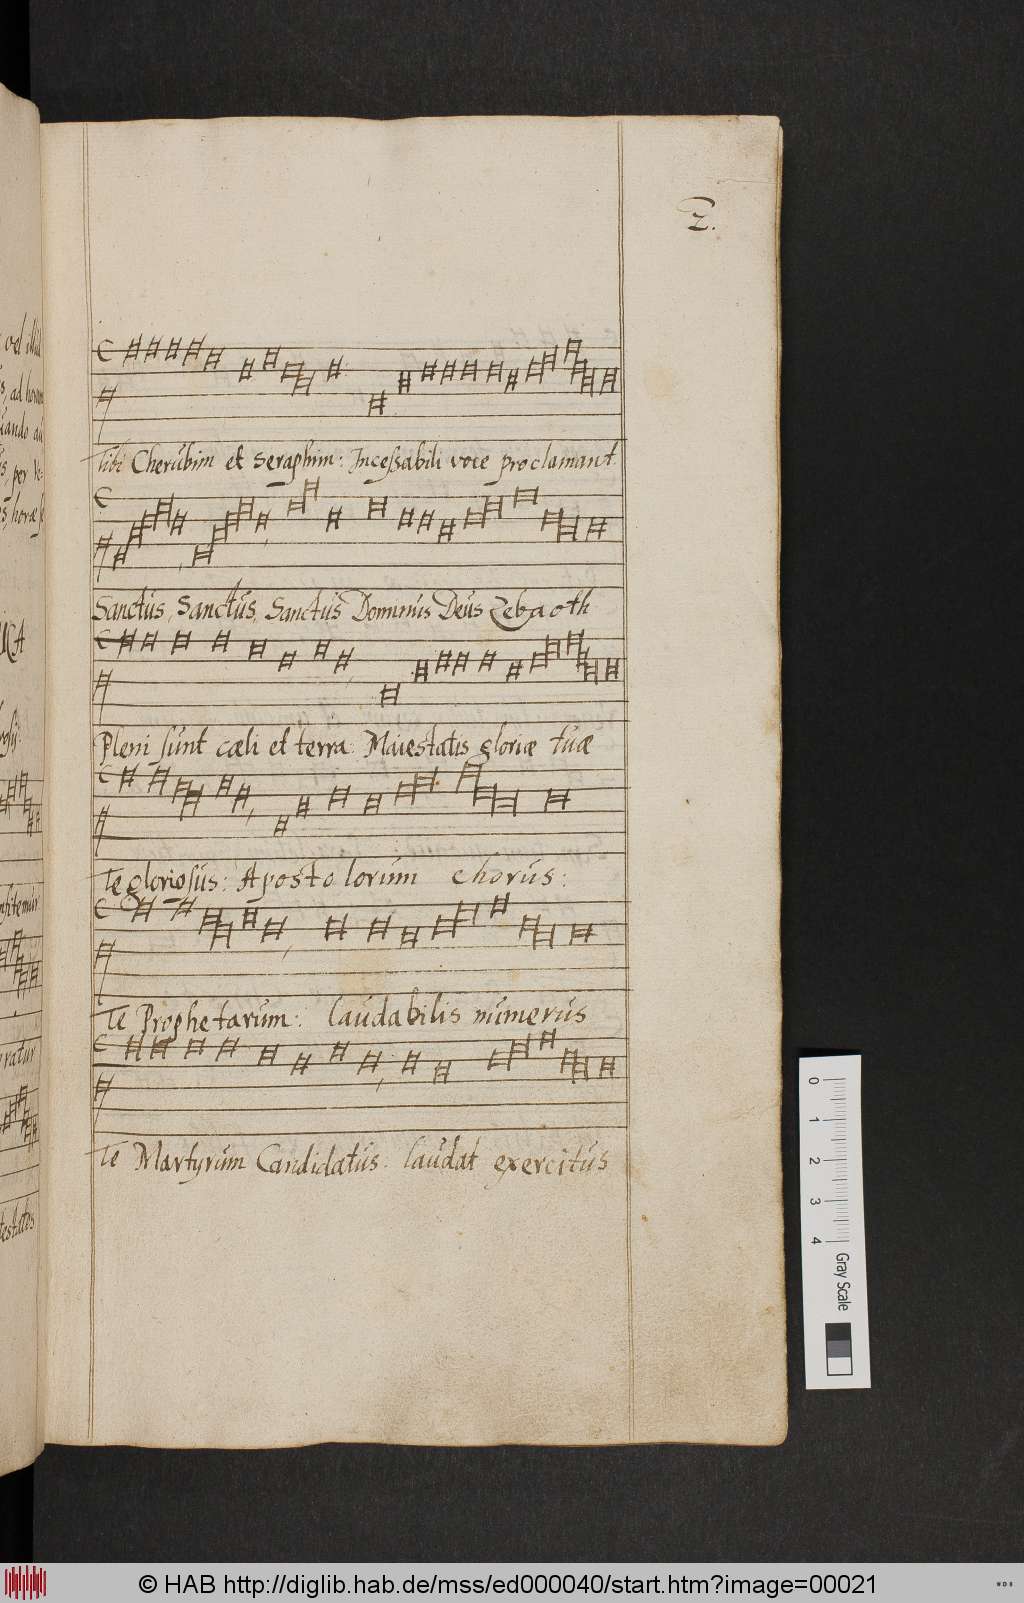 2.
Tibi Cherubim et Seraphim: Incessabili voce proclamant
Sanctus, Sanctus, Sanctus Dominus Deus Zebaoth
Pleni sunt cæli et terra: Maiestatis gloriæ tuæ
Te gloriosus: Apostolorum chorus:
Te Prophetarum: laudabilis numerus
Te Martyrum Candidatus: laudat exercitus
0 1 2 3 4 Gray Scale
© HAB http://diglib.hab.de/mss/ed000040/start.htm?image=00021